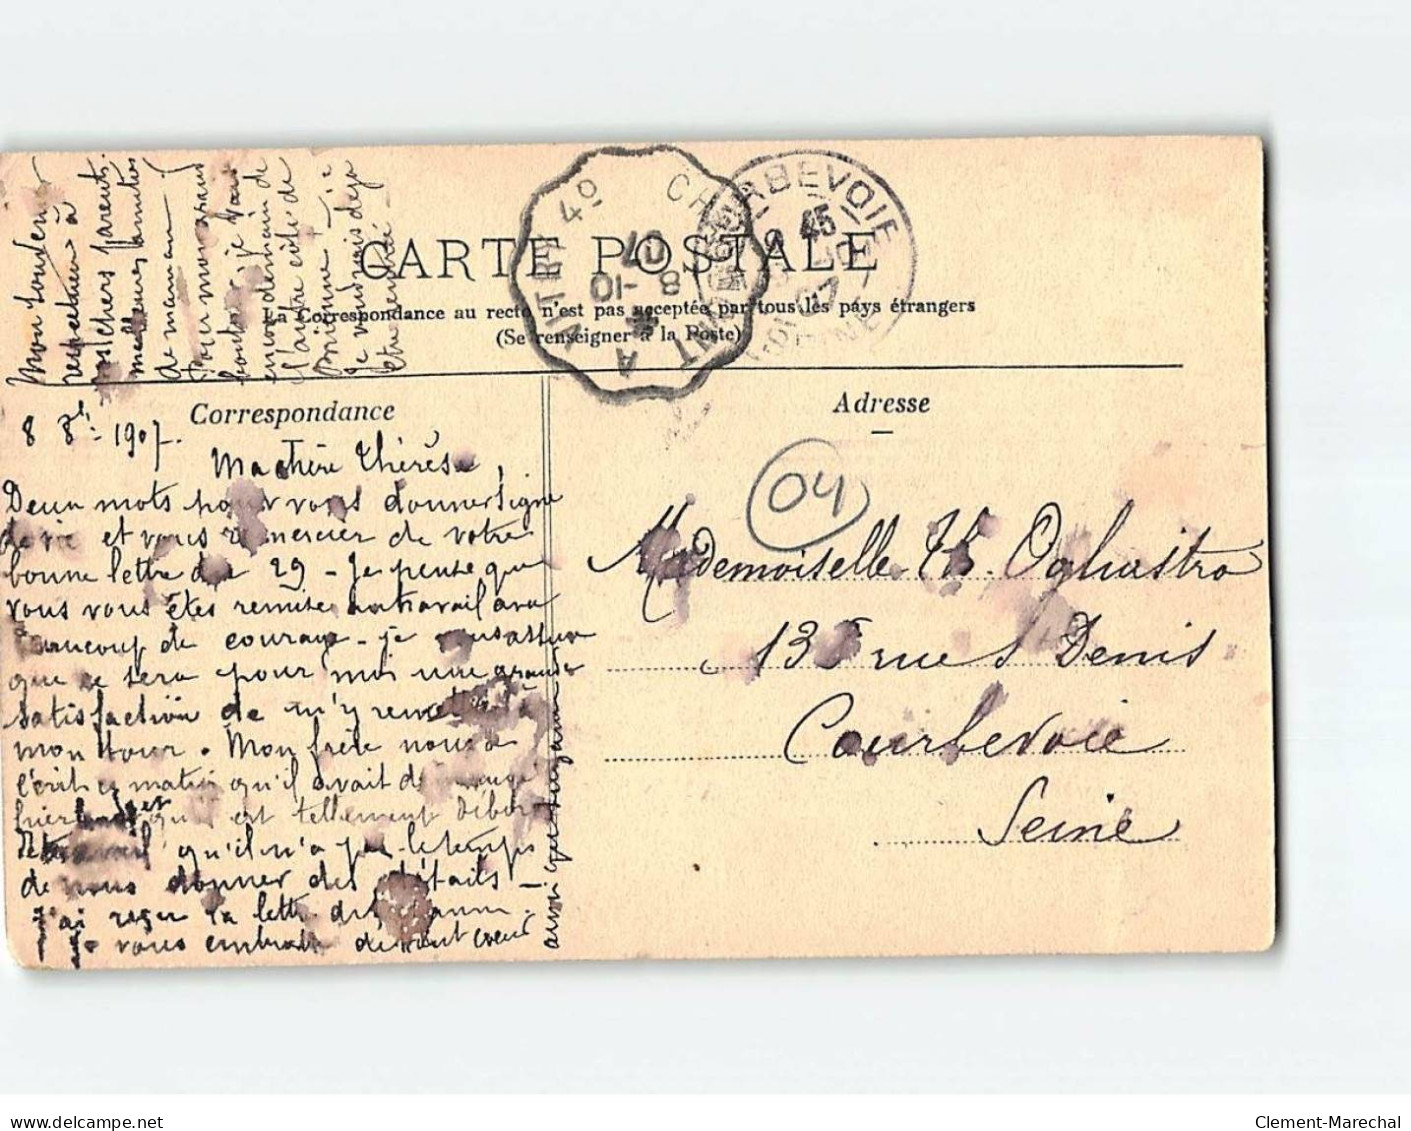 Mon souvenir
respectueux à
vos chers parents.
meilleures amitiés
de maman
Pour mon
je vais
encore demain de
l'autre côté de
Brienne - je
Je voudrais déjà
être rentré -
CARTE POSTALE
La Correspondance au recto n'est pas acceptée par tous les pays étrangers
(Se renseigner à la Poste)
CH
NT A VITRY 4o
8 -10
07
COURBEVOIE
SEINE
45
07
Correspondance
Adresse
8 8bre 1907.
Ma chère Thérèse,
Deux mots pour vous donner signe
de vie et vous remercier de votre
bonne lettre du 29 - Je pense que
vous vous êtes remise au travail avec
beaucoup de courage - je vous assure
que ce sera pour moi une grande
satisfaction de m'y remettre à
mon tour. Mon frère nous a
écrit ce matin qu'il avait
hier et qu'il est tellement
qu'il n'a pas le temps
de nous donner des détails -
J'ai reçu la lettre de
Je vous embrasse de tout cœur
ainsi que Suzanne
04
Mademoiselle Th. Ogliastro
135 rue St Denis
Courbevoie
Seine
Clement-Marechal
www.delcampe.net